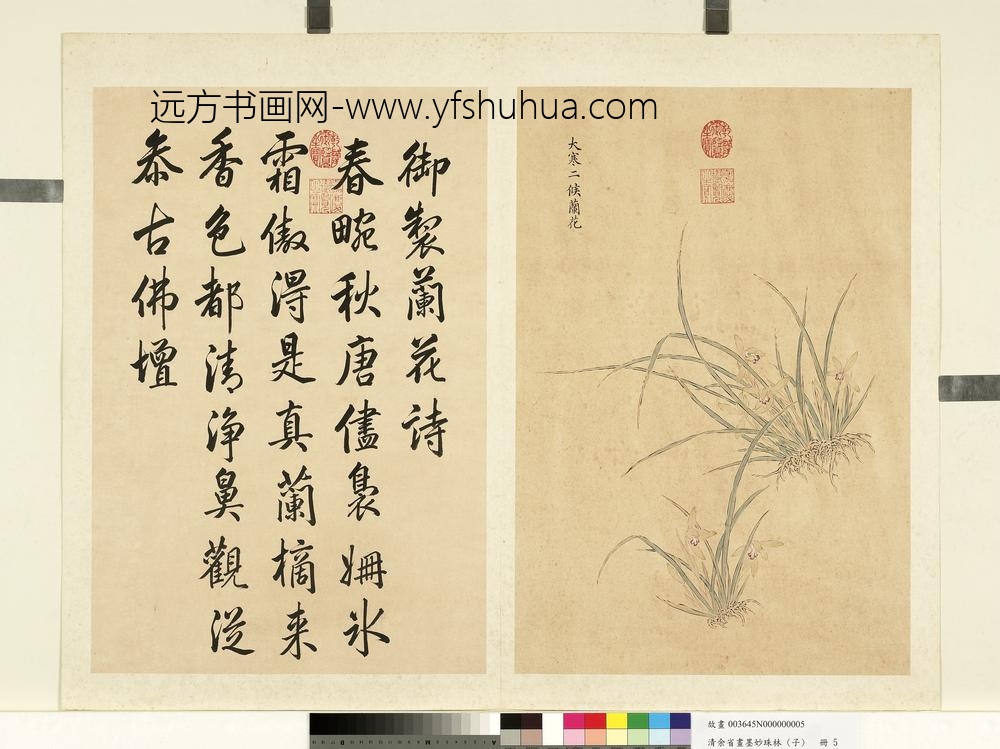 远方书画网-www.yfshuhua.com
御製蘭花詩
春畹秋唐儘裊姍氷
霜傲得是真蘭摘来
香色都清净鼻觀従
叅古佛壇
大寒二候蘭花
故畫 003645N000000005
清余省畫墨妙珠林（子） 冊 5